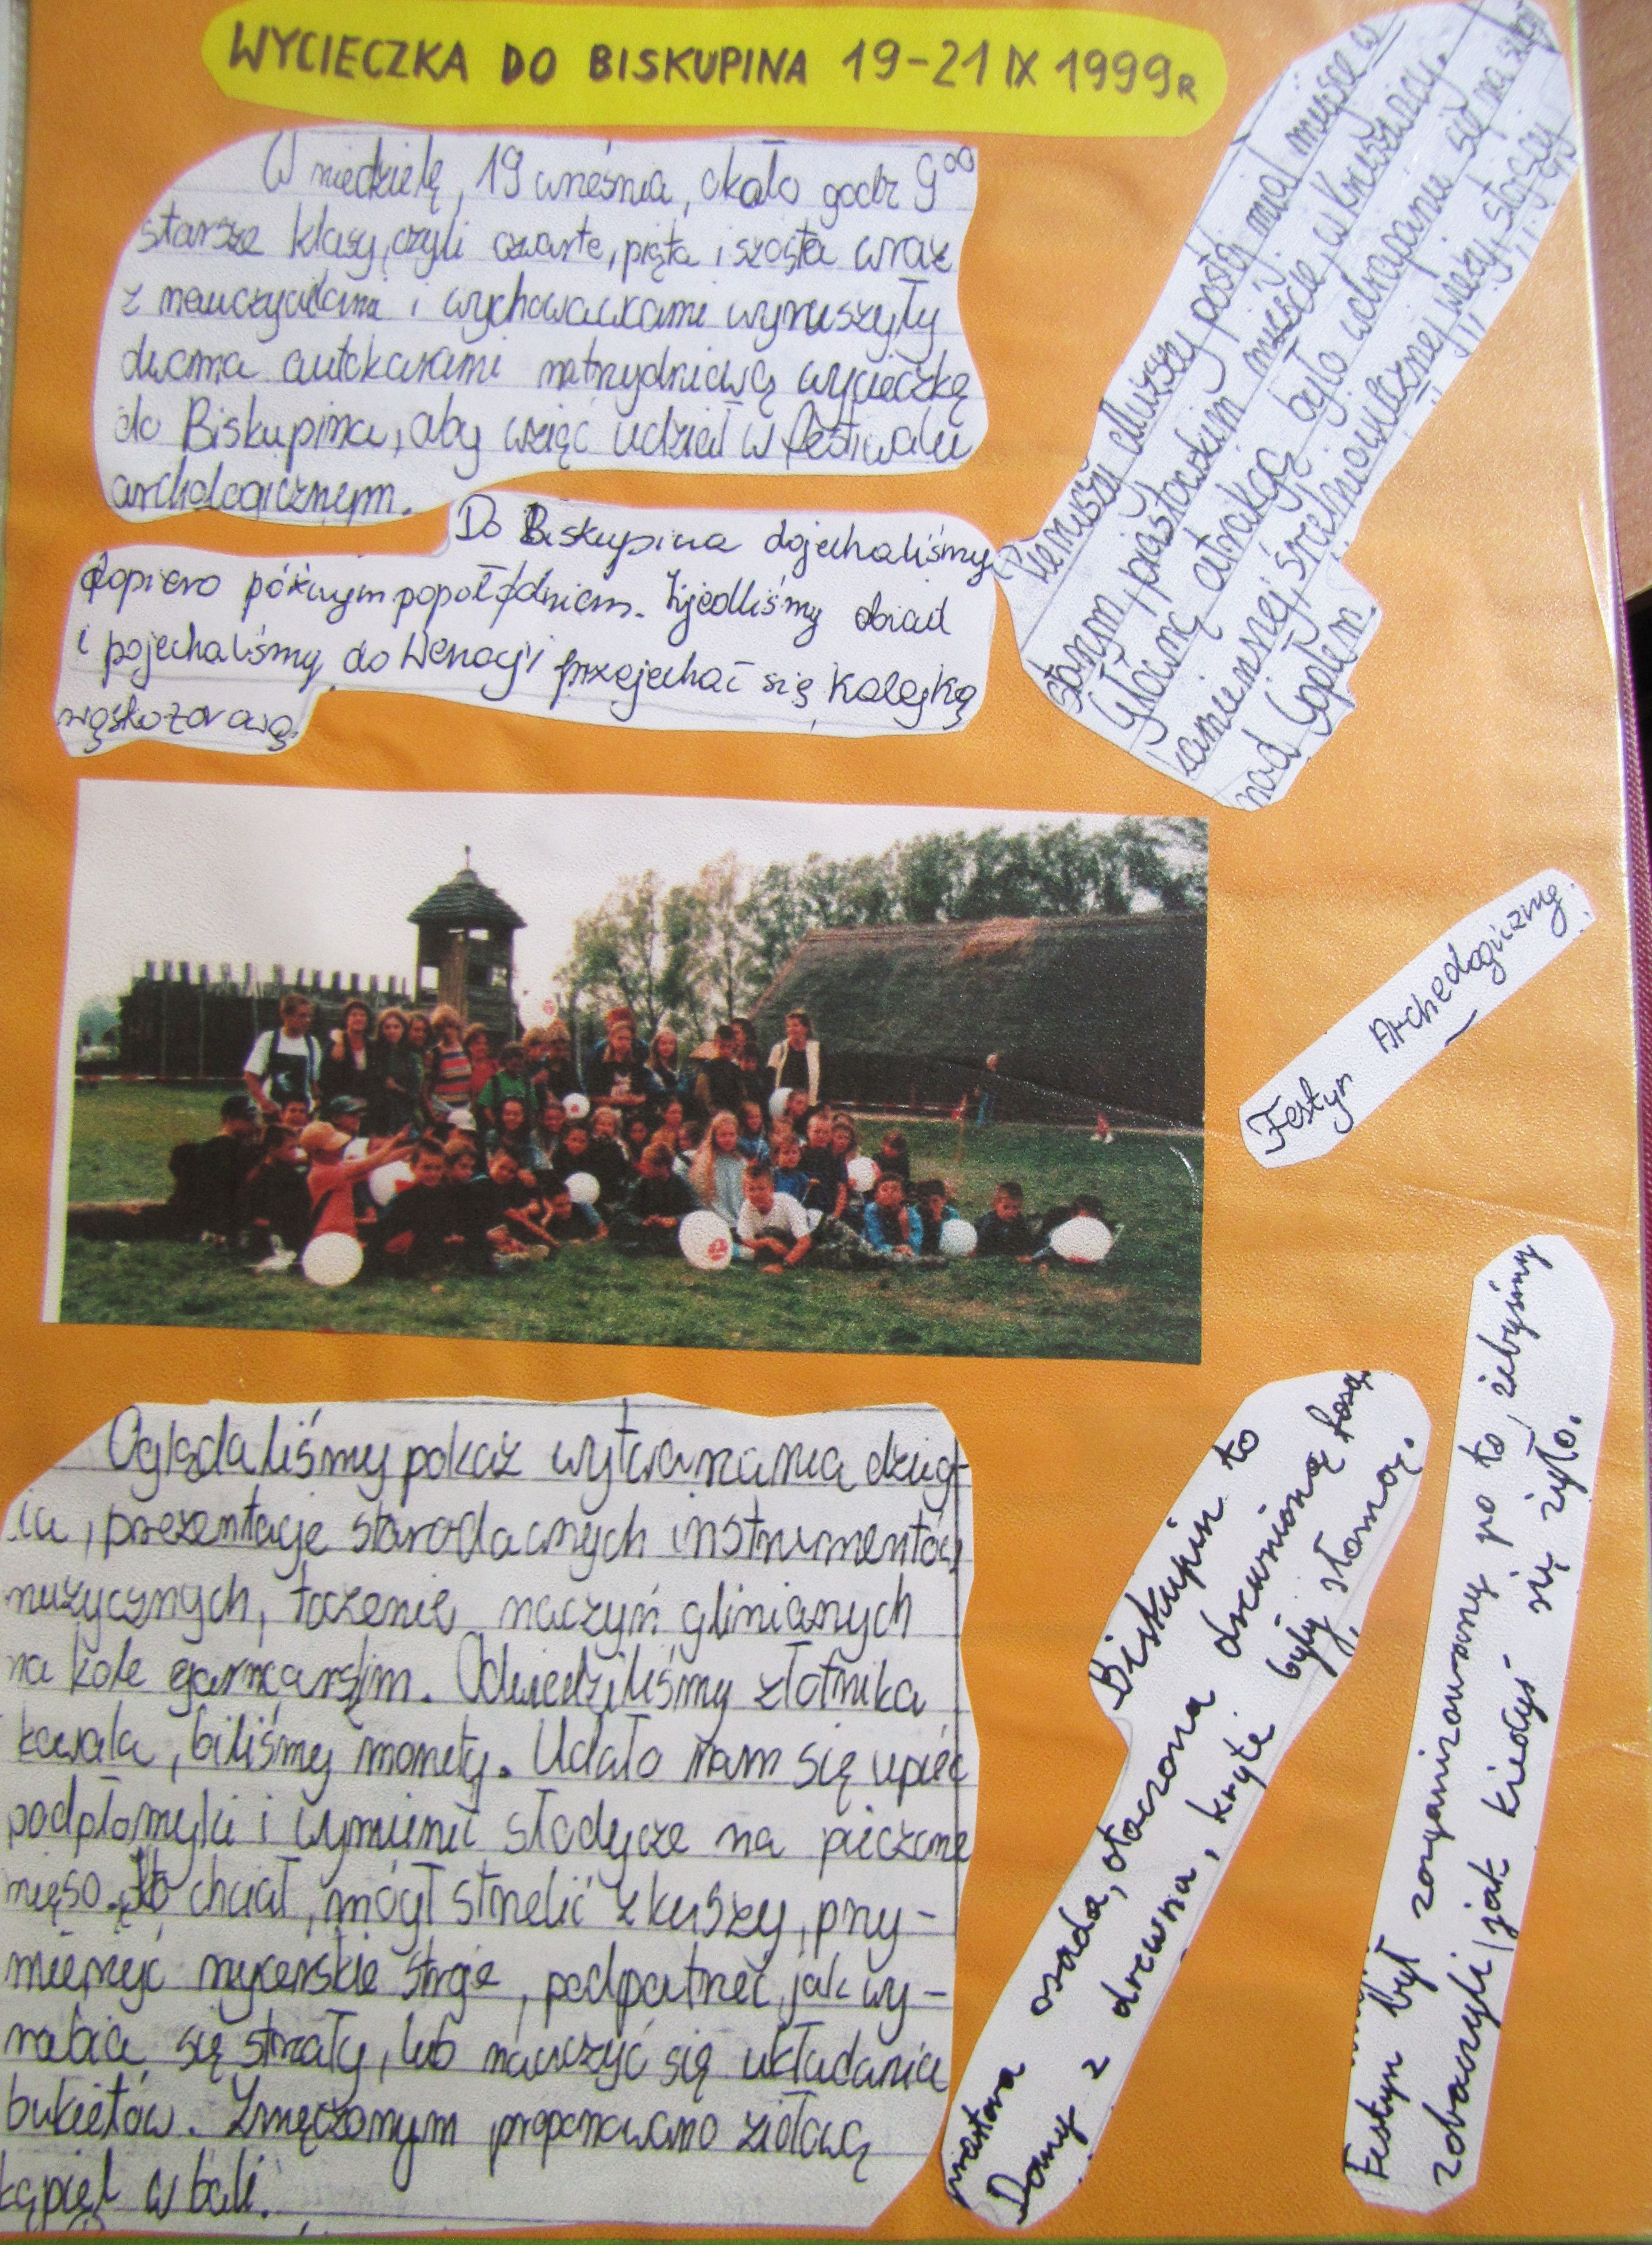 WYCIECZKA DO BISKUPINA 19-21 IX 1999R
W niedzielę, 19 września, około godz 9⁰⁰
starsze klasy, czyli czwarte, piąta i szósta wraz
z nauczycielami i wychowawcami wyruszyły
dwoma autokarami na trzydniową wycieczkę
do Biskupina, aby wziąć udział w festiwalu
archologicznym.
Do Biskupina dojechaliśmy
dopiero późnym popołudniem. Zjedliśmy obiad
i pojechaliśmy do Wenecji przejechać się kolejką
wąskotorową.
Pierwszy dłuższy postój miał miejsce w
starym, piastowskim mieście, w Kruszwicy.
Główną atrakcją było wdrapanie się na
kamiennej, średniowiecznej wieży, stojącej
nad Gopłem.
Festyn Archeologiczny
Oglądaliśmy pokaz wytwarzania dzieg-
ciu, prezentację starodawnych instrumentów
muzycznych, toczenie naczyń glinianych
na kole garncarskim. Odwiedziliśmy złotnika
kowala, biliśmy monety. Udało nam się upiec
podpłomyki i wymienić słodycze na pieczone
mięso. Kto chciał, mógł strzelić z kuszy, przy-
mierzyć rycerskie stroje, podpatrzeć jak wy-
rabia się strzały, lub nauczyć się układania
bukietów. Zmęczonym proponowano ziołową
kąpiel w bali.
Biskupin to
prastara osada, otoczona drewnianą fosą.
Domy z drewna, kryte były słomą.
Festyn był zorganizowany po to, żebyśmy
zobaczyli jak kiedyś się żyło.